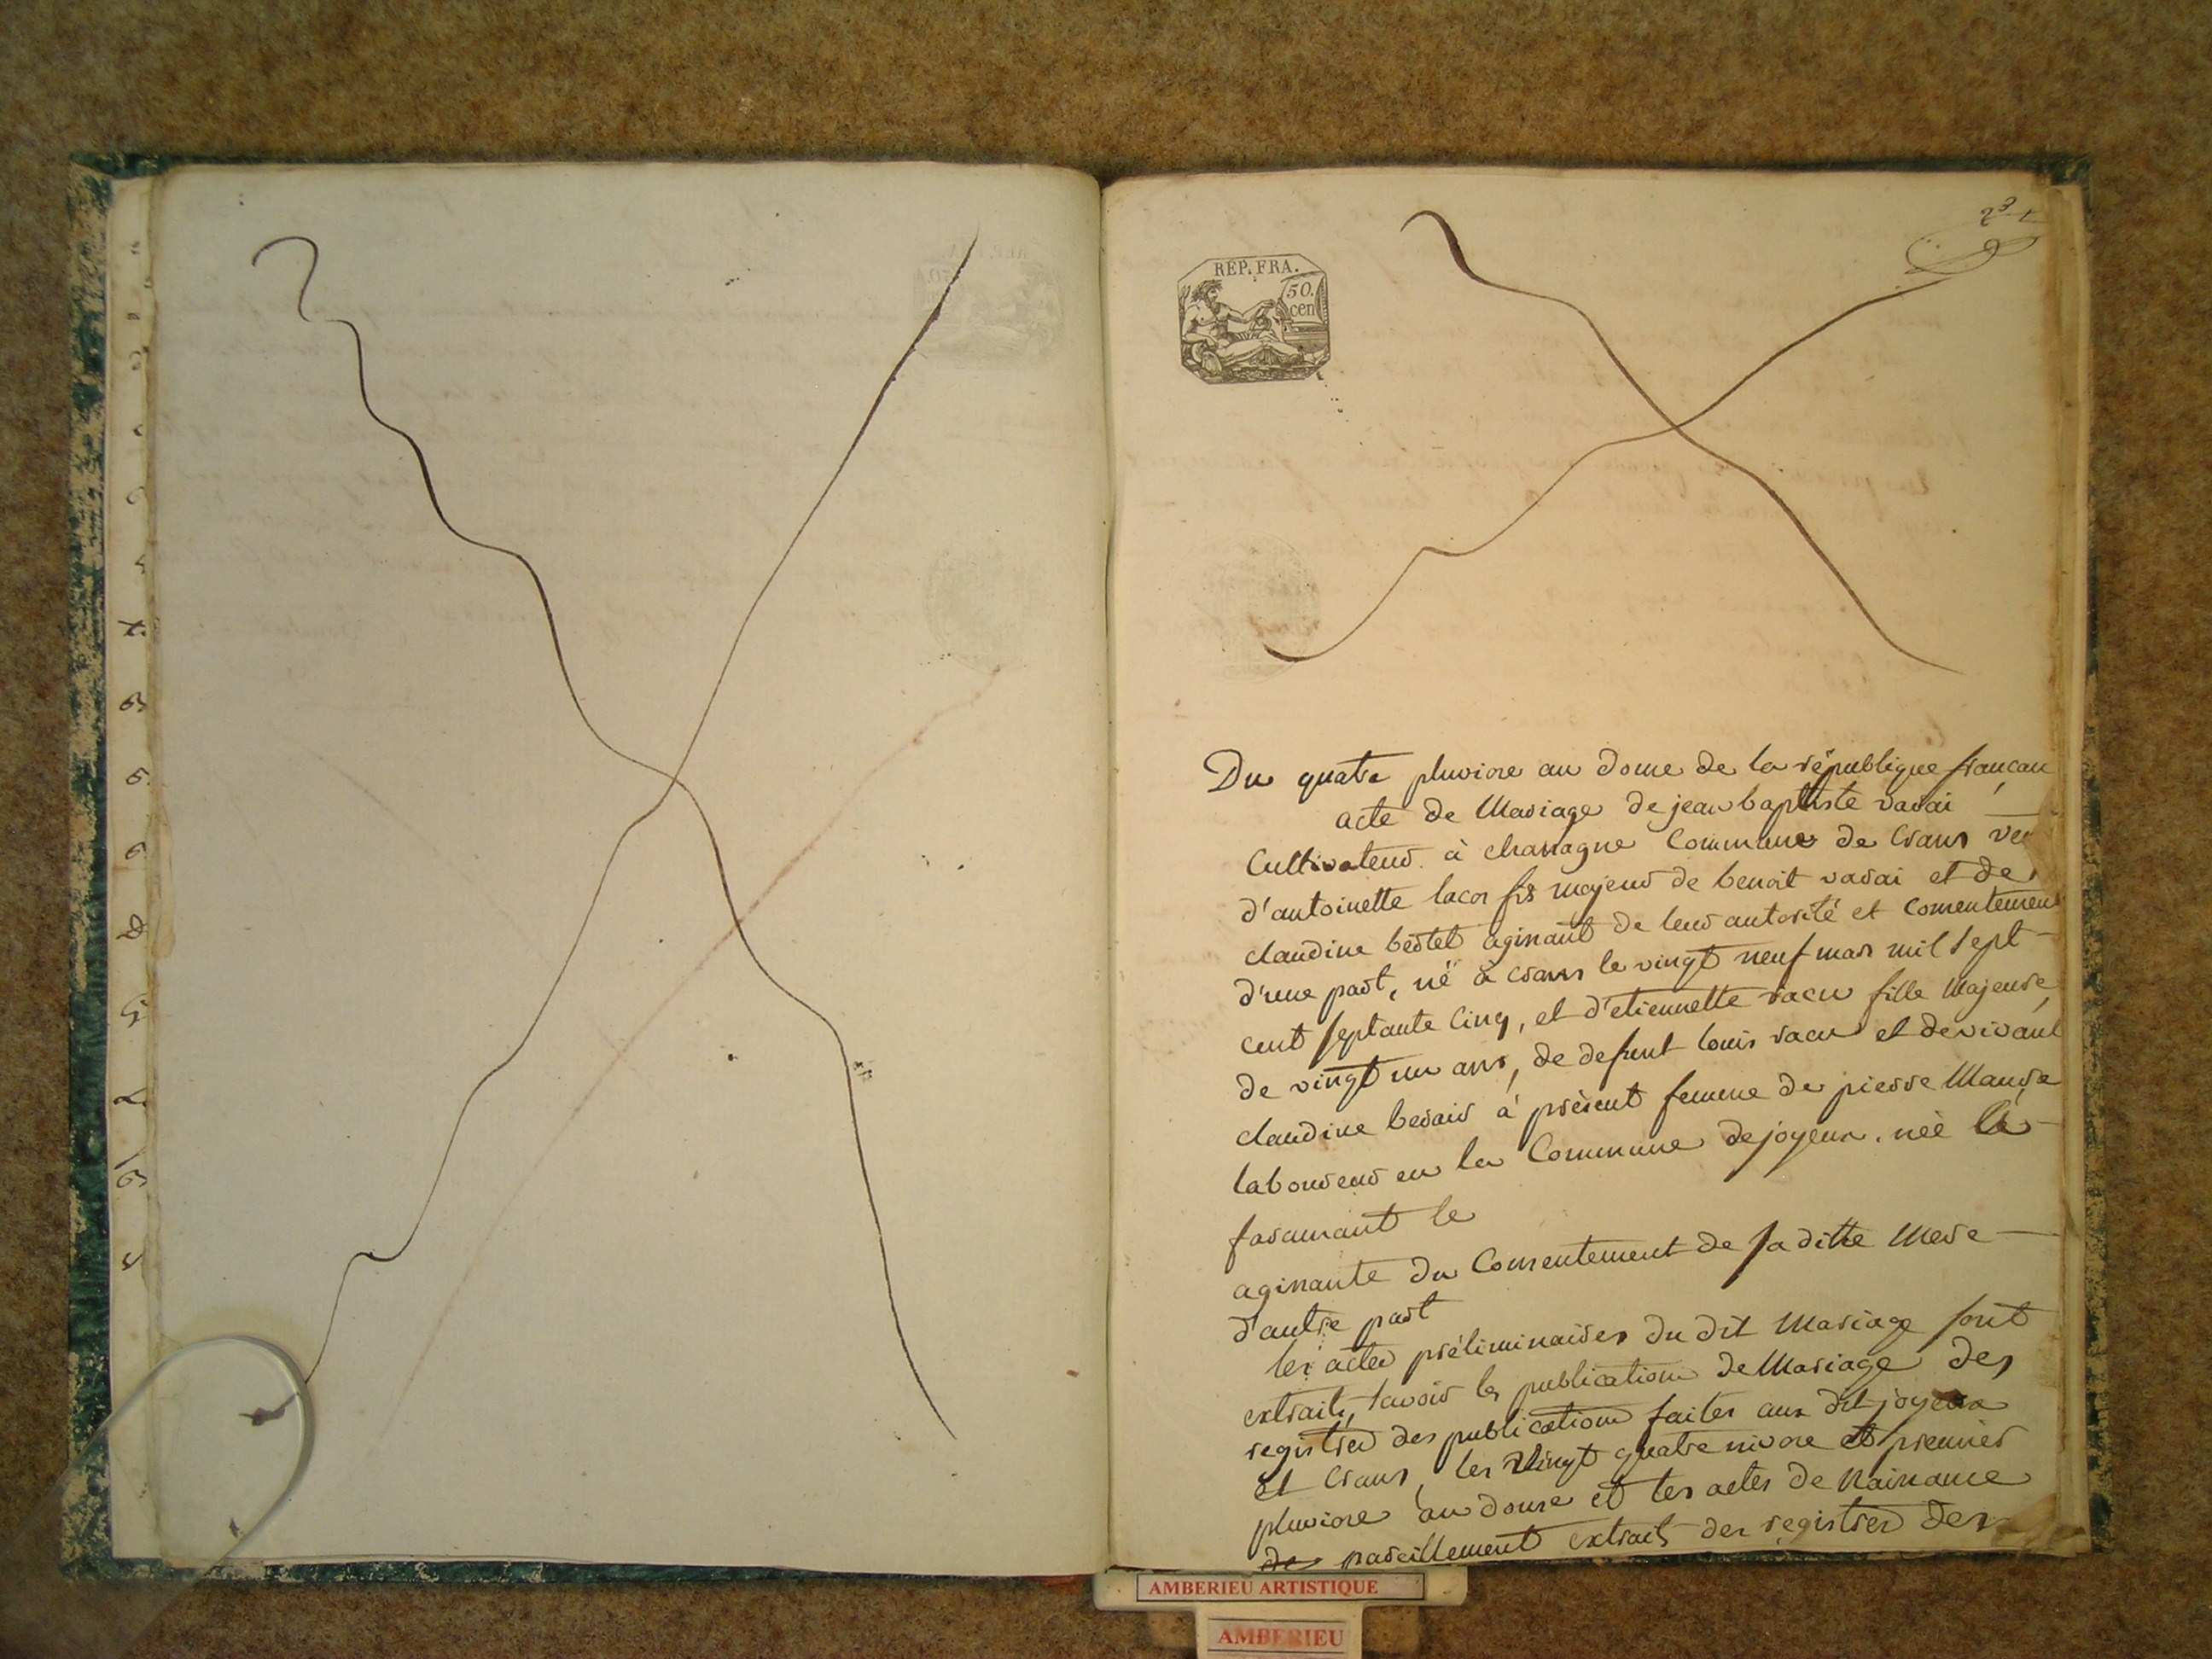 REP. FRA.
50.
cen
Du quatre pluviose an douse de la république françau
acte de Mariage de jean baptiste varai
Cultivateur à chanagne Commune de Crans
d'antoinette lacon fis majeur de benoit varai et de
claudine bertet agissant de leur autorité et consentement
d'une part, né à crans le vingt neuf mars mil sept
cent septante cinq, et d'etiennette racu fille Majeure
de vingt un ans, de defunt louis racu et de vivant
claudine berair à présent femme de pierre
laboureur en la Commune de joyeux, née là
faramant le
agissante du Consentement de sa ditte Mere
d'autre part
les actes préliminaires du dit Mariage sont
extraits, savoir les publications de Mariage des
registres des publications faites aux dit joyeux
et Crans, les Vingt quatre nivose et premier
pluviose an douse et les actes de Naissance
de pareillement extraits des registres des
AMBERIEU ARTISTIQUE
AMBERIEU